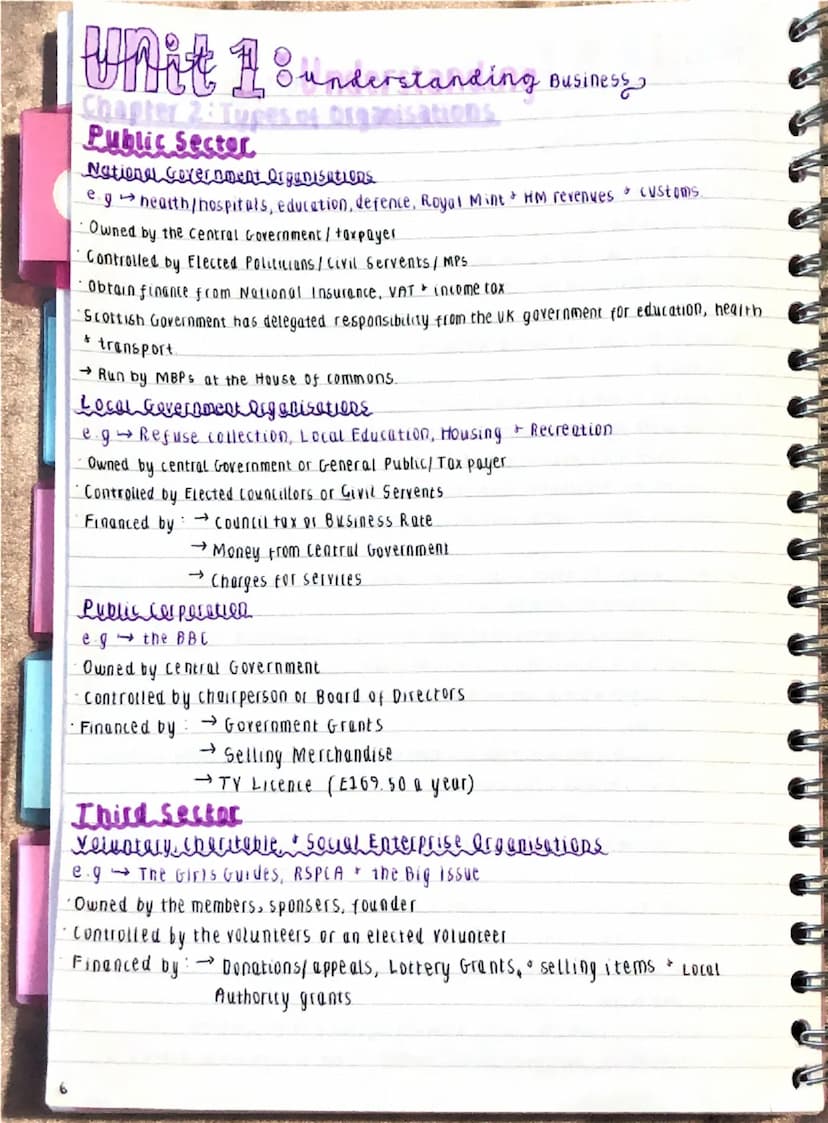 Unit 1: Understanding Business
Chapter 2: Types of Organisations
Public Sector
National Government Organisations
e.g → health/hospitals, education, defence, Royal Mint + HM revenues + customs.
· Owned by the Central Government/taxpayer
· Controlled by Elected Politicians/Civil Servents/MPs
· Obtain finance from National Insurance, VAT + income tax
· Scottish Government has delegated responsibility from the UK government for education, health
+ transport.
→ Run by MBPs at the House of commons.
Local Government Organisations
e.g → Refuse collection, Local Education, Housing + Recreation
· Owned by central Government or General Public/Tax payer
· Controlled by Elected Councillors or Civil Servents
· Financed by: → Council tax or Business Rate
→ Money from Central Government
→ Charges for services
Public Corporation
e.g → the BBC
· Owned by Central Government
· Controlled by chairperson or Board of Directors
· Financed by: → Government Grants
→ Selling Merchandise
→ TV Licence (£169.50 a year)
Third Sector
Voluntary, Charitable, + Social Enterprise Organisations
e.g → The Girls Guides, RSPCA + the Big Issue
· Owned by the members, sponsers, founder
· Controlled by the volunteers or an elected volunteer
· Financed by: → Donations/appeals, Lottery Grants, + selling items + Local
Authority grants
6